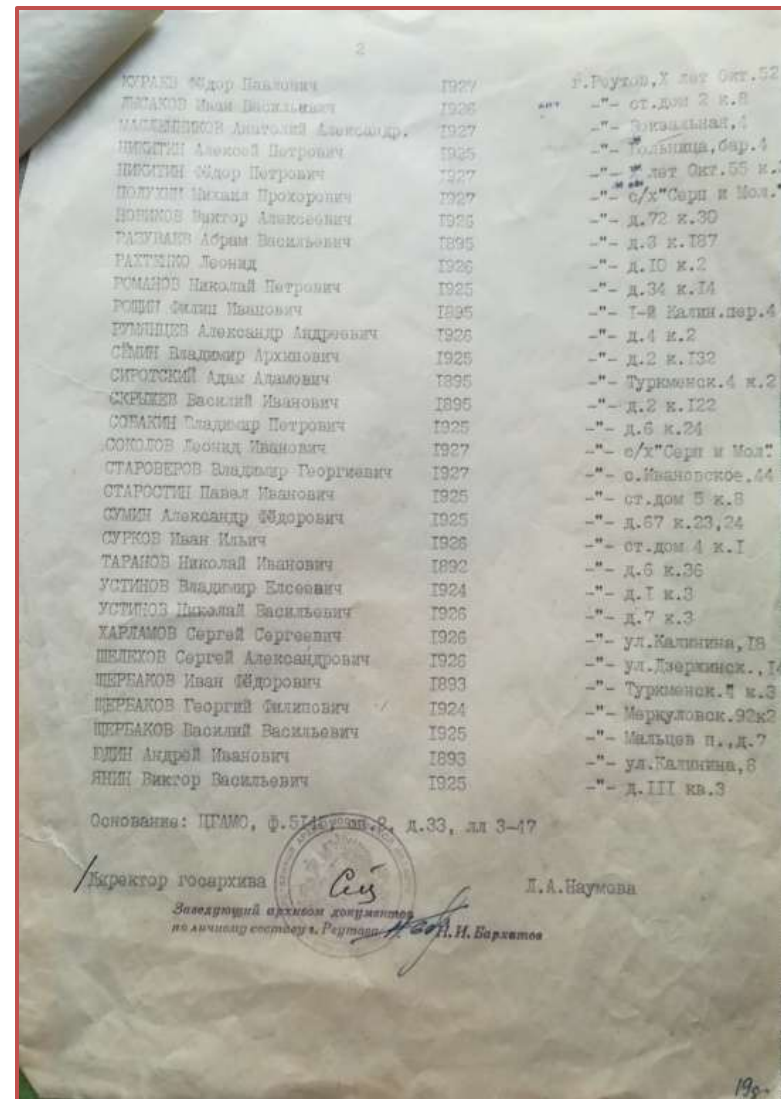 2
КУРАЕВ Фёдор Павлович 1927 г.Реутов,X лет Окт.52
ЛЫСАКОВ Иван Васильевич 1926 -"- ст.дом 2 к.8
МАСЛЕННИКОВ Анатолий Александр. 1927 -"- Вокзальная,4
НИКИТИН Алексей Петрович 1925 -"- Больница,бар.4
НИКИТИН Фёдор Петрович 1927 -"- X лет Окт.55 к.
ПОЛУХИН Михаил Прохорович 1927 -"- с/х"Серп и Мол."
НОВИКОВ Виктор Алексеевич 1926 -"- д.72 к.30
РАЗУВАЕВ Абрам Васильевич I895 -"- д.3 к.I87
РАХТЕНКО Леонид 1926 -"- д.IO к.2
РОМАНОВ Николай Петрович 1925 -"- д.34 к.I4
РОЩИН Филип Иванович I895 -"- I-й Калин.пер.4
РУМЯНЦЕВ Александр Андреевич 1926 -"- д.4 к.2
СЁМИН Владимир Архипович 1925 -"- д.2 к.I32
СИРОТСКИЙ Адам Адамович I895 -"- Туркменск.4 к.2
СКРЫЛЕВ Василий Иванович I895 -"- д.2 к.I22
СОБАКИН Владимир Петрович 1925 -"- д.6 к.24
СОКОЛОВ Леонид Иванович 1927 -"- с/х"Серп и Мол".
СТАРОВЕРОВ Владимир Георгиевич 1927 -"- с.Ивановское,44
СТАРОСТИН Павел Иванович I925 -"- ст.дом 5 к.8
СУМИН Александр Фёдорович I925 -"- д.67 к.23,24
СУРКОВ Иван Ильич I926 -"- ст.дом 4 к.I
ТАРАНОВ Николай Иванович I892 -"- д.6 к.36
УСТИНОВ Владимир Елсеевич I924 -"- д.I к.3
УСТИНОВ Николай Васильевич I926 -"- д.7 к.3
ХАРЛАМОВ Сергей Сергеевич I926 -"- ул.Калинина,I8
ШЕЛЕХОВ Сергей Александрович I926 -"- ул.Дзержинск.,I4
ЩЕРБАКОВ Иван Фёдорович I893 -"- Туркменск. к.3
ЩЕРБАКОВ Георгий Филипович I924 -"- Меркуловск.92к2
ЩЕРБАКОВ Василий Васильевич I925 -"- Мальцев п.,д.7
ЮДИН Андрей Иванович I893 -"- ул.Калинина,8
ЯНИН Виктор Васильевич I925 -"- д.III кв.3
Основание: ЦГАМО, ф.5I45, оп.2, д.33, лл 3-47
Директор госархива Л.А.Наумова
Заведующий архивом документов
по личному составу г. Реутова Н.И. Бархатов